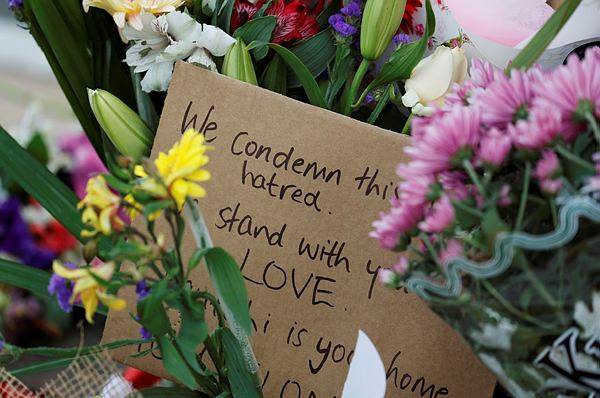 We Condemn this
hatred.
stand with
LOVE.
is home